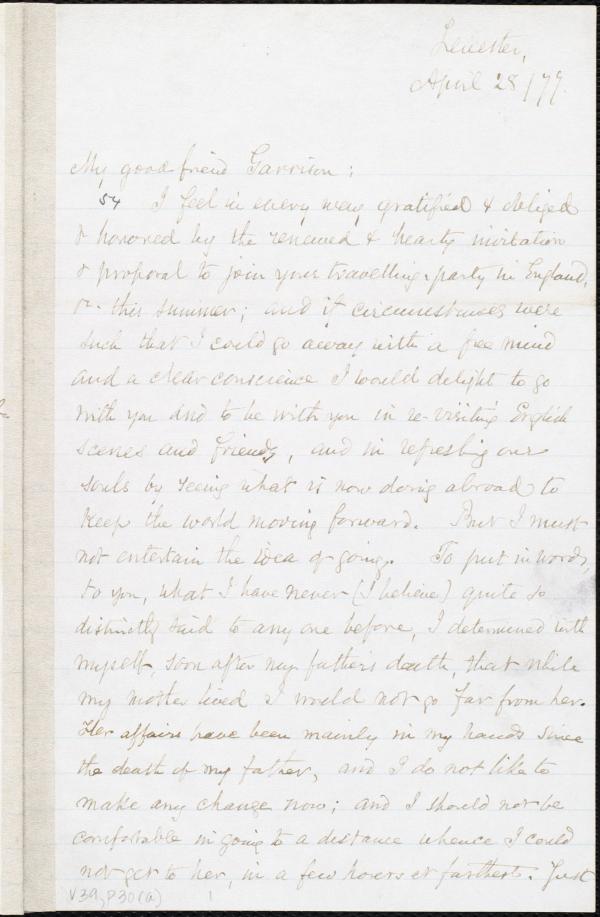 Leicester,
April 28/77.
My good friend Garrison:
54 I feel in every way gratified & obliged
& honored by the renewed & hearty invitation
& proposal to join your travelling-party in England,
this summer; and if circumstances were
such that I could go away with a free mind
and a clear conscience I would delight to go
with you and to be with you in re-visiting English
scenes and friends, and in refreshing our
souls by seeing what is now doing abroad to
keep the world moving forward. But I must
not entertain the idea of going. To put in words,
to you, what I have never (I believe) quite so
distinctly said to any one before, I determined with
myself, soon after my father's death, that while
my mother lived I would not go far from her.
Her affairs have been mainly in my hands since
the death of my father, and I do not like to
make any change now; and I should not be
comfortable in going to a distance whence I could
not get to her, in a few hours at farthest. Just
V39, P30(a) 1